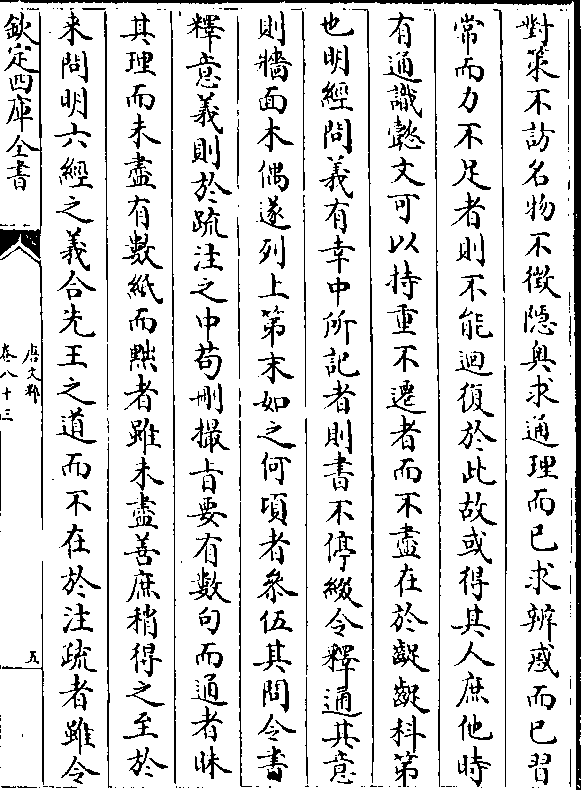 對策不訪名物不徵隱奥求通理而已求辨惑而已習
常而力不足者則不能迴復於此故或得其人庶他時
有通識懿文可以持重不遷者而不盡在於齪齪科第
也明經問義有幸中所記者則書不停綴令釋通其意
則牆面木偶遂列上第末如之何頃者參伍其問令書
釋意義則於疏注之中苟刪撮旨要有數句而通者昧
其理而未盡有數紙而黜者雖未盡善庶稍得之至於
来問明六經之義合先王之道而不在於注疏者雖令
欽定四庫全書
唐文粹
卷八十三
五